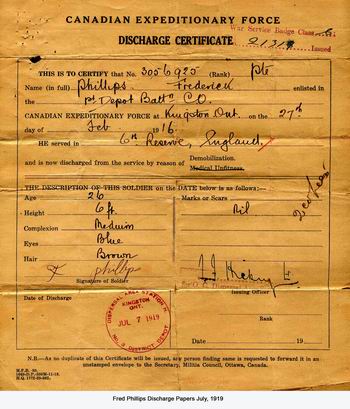 CANADIAN EXPEDITIONARY FORCE
DISCHARGE CERTIFICATE
War Service Badge Class
Issued
THIS IS TO CERTIFY that No. 3056925 (Rank) Pte
Name (in full) Phillips Frederick enlisted in
the 1st Depot Battn
CANADIAN EXPEDITIONARY FORCE at Kingston Ont. on the 27th
day of Feb
HE served in 6th Reserve, England
and is now discharged from the service by reason of Demobilization.
Medical Unfitness.
THE DESCRIPTION OF THIS SOLDIER on the DATE below is as follows:—
Age 26
Height 6 ft.
Complexion Medium
Eyes Blue
Hair Brown
Marks or Scars
Nil
Phillip
Signature of Soldier
Issuing Officer
Date of Discharge
DISPERSAL AREA STATION
KINGSTON
ONT.
JUL 7 1919
No. 3 DISTRICT DEPOT
Date 19
N.B.—As no duplicate of this Certificate will be issued, any person finding same is requested to forward it in an
unstamped envelope to the Secretary, Militia Council, Ottawa, Canada.
Fred Phillips Discharge Papers July, 1919